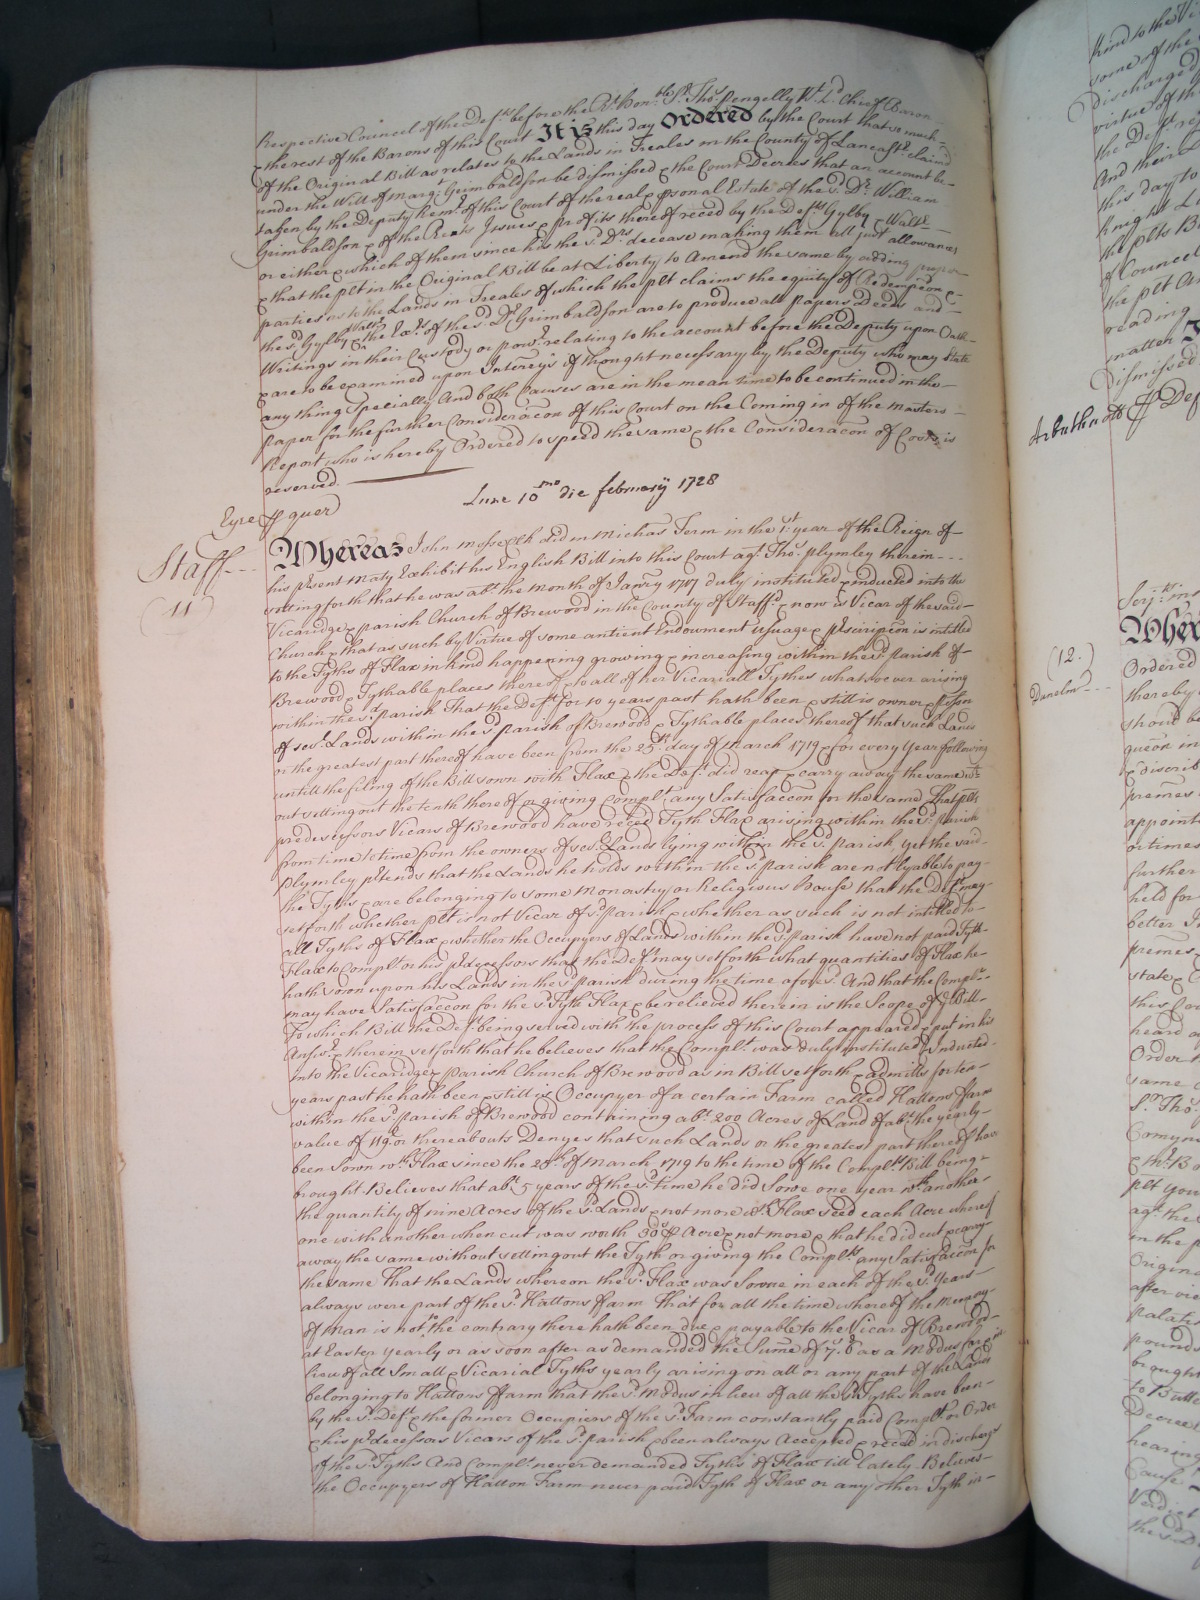 Respective Councel of the Def.ts before the R.t Hon.ble S.r Tho.s Pengelly K.t L.d Chief Baron
& the rest of the Barons of this Court It is this day Ordered by the Court that so much
of the Original Bill as relates to the Lands in Treales in the County of Lancast.r claim'd
under the Will of Marg.t Grimbaldson be dismissed & the Court Decrees that an account be
taken by the Deputy Rem.r of this Court of the real & psonal Estate of the s.d D.r William
Grimbaldson & of the Rents Issues & profits thereof reced by the Def.ts Gylby & Wall
or either & which of them since his the s.d D.rs decease making them all just allowances
& that the plt in the Original Bill be at Liberty to Amend the same by adding proper
parties as to the Lands in Treales of which the plt claims the equity of Redempcon &
the s.d Gylby & Wall the Ex.rs of the s.d D.r Grimbaldson are to produce all papers Deeds and
Writings in their Custody or power relating to the account before the Deputy upon Oath
& are to be examined upon Interrys if thought necessary by the Deputy who may state
any thing specially And both Causes are in the mean time to be continued in the
paper for the further Consideracon of this Court on the Coming in of the Masters
Report who is hereby Ordered to speed the same & the Consideracon of Costs is
reserved.
Eyre p quer
Lune 10mo die february 1728
Staff
(11)
Whereas John Mosseph did in Michas Term in the 1st year of the Reign of
his psent Maty Exhibit his English Bill into this Court ag.t Tho.s Plymley therein
setting forth that he was ab.t the Month of Janry 1717 duly instituted & inducted into the
Vicaridge & parish Church of Brewood in the County of Staff.d & now is Vicar of the said
Church & that as such by Virtue of some antient Endowment usuage & pscripcon is intitled
to the Tyths of Flax in kind happening growing & increasing within the s.d parish of
Brewood & Tythable places thereof & to all other Vicariall Tythes whatsoever arising
within the s.d parish That the Def.t for 10 years past hath been & still is owner &
of sev.l Lands within the s.d parish of Brewood & Tythable places thereof that such Lands
or the greatest part thereof have been from the 25th day of March 1719 & for every year following
untill the filing of the Bill sown with Flax & the Def.t did reap & carry away the same w.th
out setting out the tenth thereof or giving Compl.t any Satisfaccon for the same That plts
predecessors Vicars of Brewood have reced Tyth Flax arising within the s.d parish
from time to time from the owners of sev.l Lands lying within the s.d parish yet the said
Plymley ptends that the Lands he holds within the s.d parish are not lyable to pay
the Tyths & are belonging to some Monastry or Religious house that the Def.t may
set forth whether plt is not Vicar of s.d parish & whether as such is not intitled to
all Tyths of Flax & whether the Occupyers of Lands within the s.d parish have not paid Tyth
Flax to Compl.t or his pdecessors that the Def.t may set forth what quantities of Flax he
hath sown upon his Lands in the s.d parish during the time afores.d And that the Compl.t
may have Satisfaccon for the s.d Tyth Flax & be relieved therein is the Scope of y.e Bill
To which Bill the Def.t being served with the process of this Court appeared & put in his
Answ.r & therein setforth that he believes that the Compl.t was duly instituted & Inducted
into the Vicaridge & parish Church of Brewood as in Bill setforth & admitts for ten
years past he hath been & still is Occupyer of a certain Farm called Hattons ffarm
within the s.d parish of Brewood containing ab.t 200 Acres of Land of ab.t the yearly
value of 119.l or thereabouts Denyes that such Lands or the greatest part thereof have
been sown w.th Flax since the 25th of March 1719 to the time of the Compl.ts Bill being
brought Believes that ab.t 5 years of the s.d time he did Sowe one year w.th another
the quantity of nine Acres of the s.d Lands & not more w.th Flax seed each Acre whereof
one with another when cut was worth 30.s p Acre & not more & that he did cut & carry
away the same without setting out the Tyth or giving the Compl.t any Satisfaccon for
the same That the Lands whereon the s.d Flax was Sowne in each of the s.d years
always were part of the s.d Hattons ffarm That for all the time whereof the Memory
of Man is not to the contrary there hath been due & payable to the Vicar of Brewood
at Easter yearly or as soon after as demanded the Sume of as a Modus for & in
lieu of all Small & Vicarial Tyths yearly arising on all or any part of the Lands
belonging to Hattons ffarm that the s.d Modus in lieu of all the s.d Tyths have been
by the s.d Def.t & the former Occupiers of the s.d Farm constantly paid Compl.t or Order
& his pdecessors Vicars of the s.d parish & been always Accepted & reced in discharge
of the s.d Tyths And Compl.t never demanded Tyths of Flax till lately Believes
the Occupyers of Hatton Farm never paid Tyth of Flax or any other Tyth in
kind to the Vi
some of the
Discharged
virtue of th
the Def.t re
And their
this day to
knight L
the plts B
of Councel
the plt
reading
matter
Dismissed
Arbuthnott p Def
(12.)
Dunelm
Wher
Ordered
thereby
should be
& discrib
premes
appoint
or times
further
held for
better
premes
state &
this Cou
heard a
Order
same
S.r Tho.s
Comyns
plt you
ag.t the
in the p
Origina
after
palate
pounds
brought
to
Decree
hearing
Cause
Verdict
the s.d